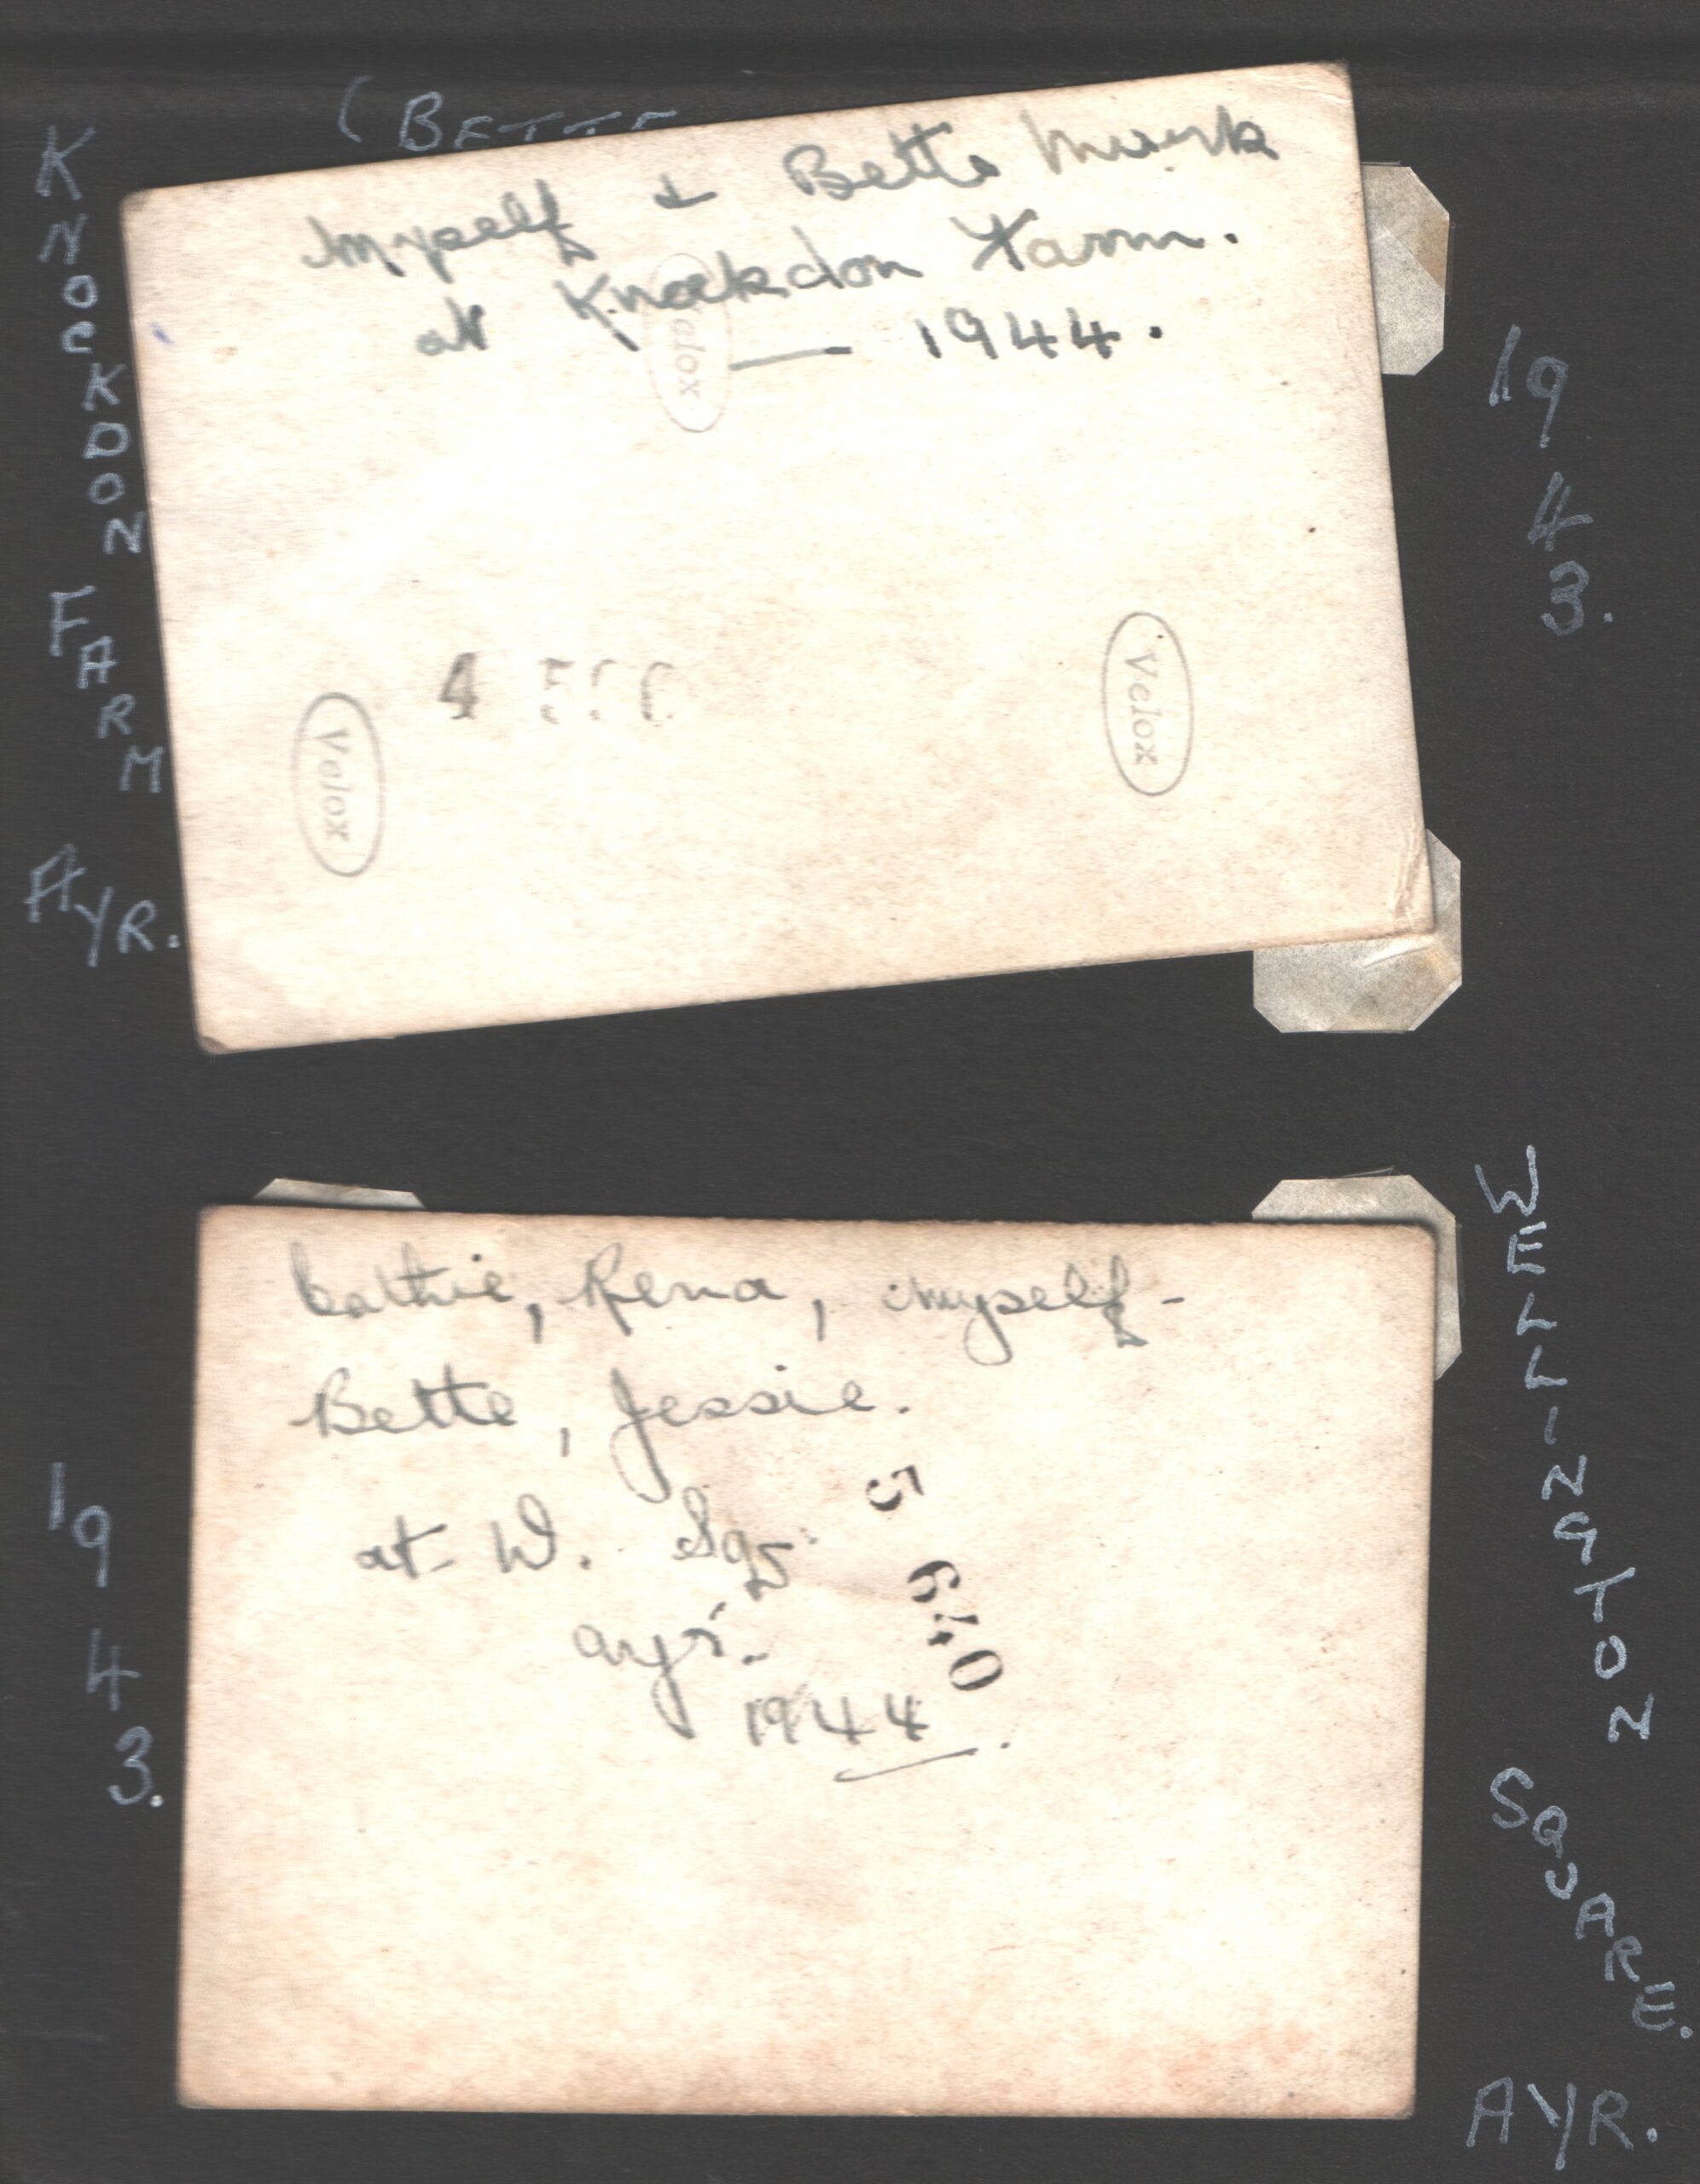 (BETTE
KNOCKDON
FARM
AYR.
Myself & Bette
at Knockdon Farm.
1944.
Velox
Velox
Velox
4
1943.
Cathie, Rena, myself -
Bette, Jessie.
at W. Sq.
Ayr.
1944.
5 640
1943.
WELLINGTON
SQUARE.
AYR.